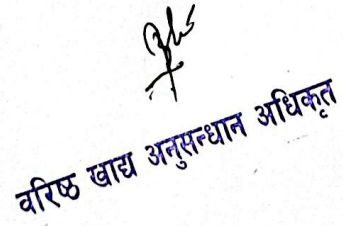 वरिष्ठ खाद्य अनुसन्धान अधिकृत